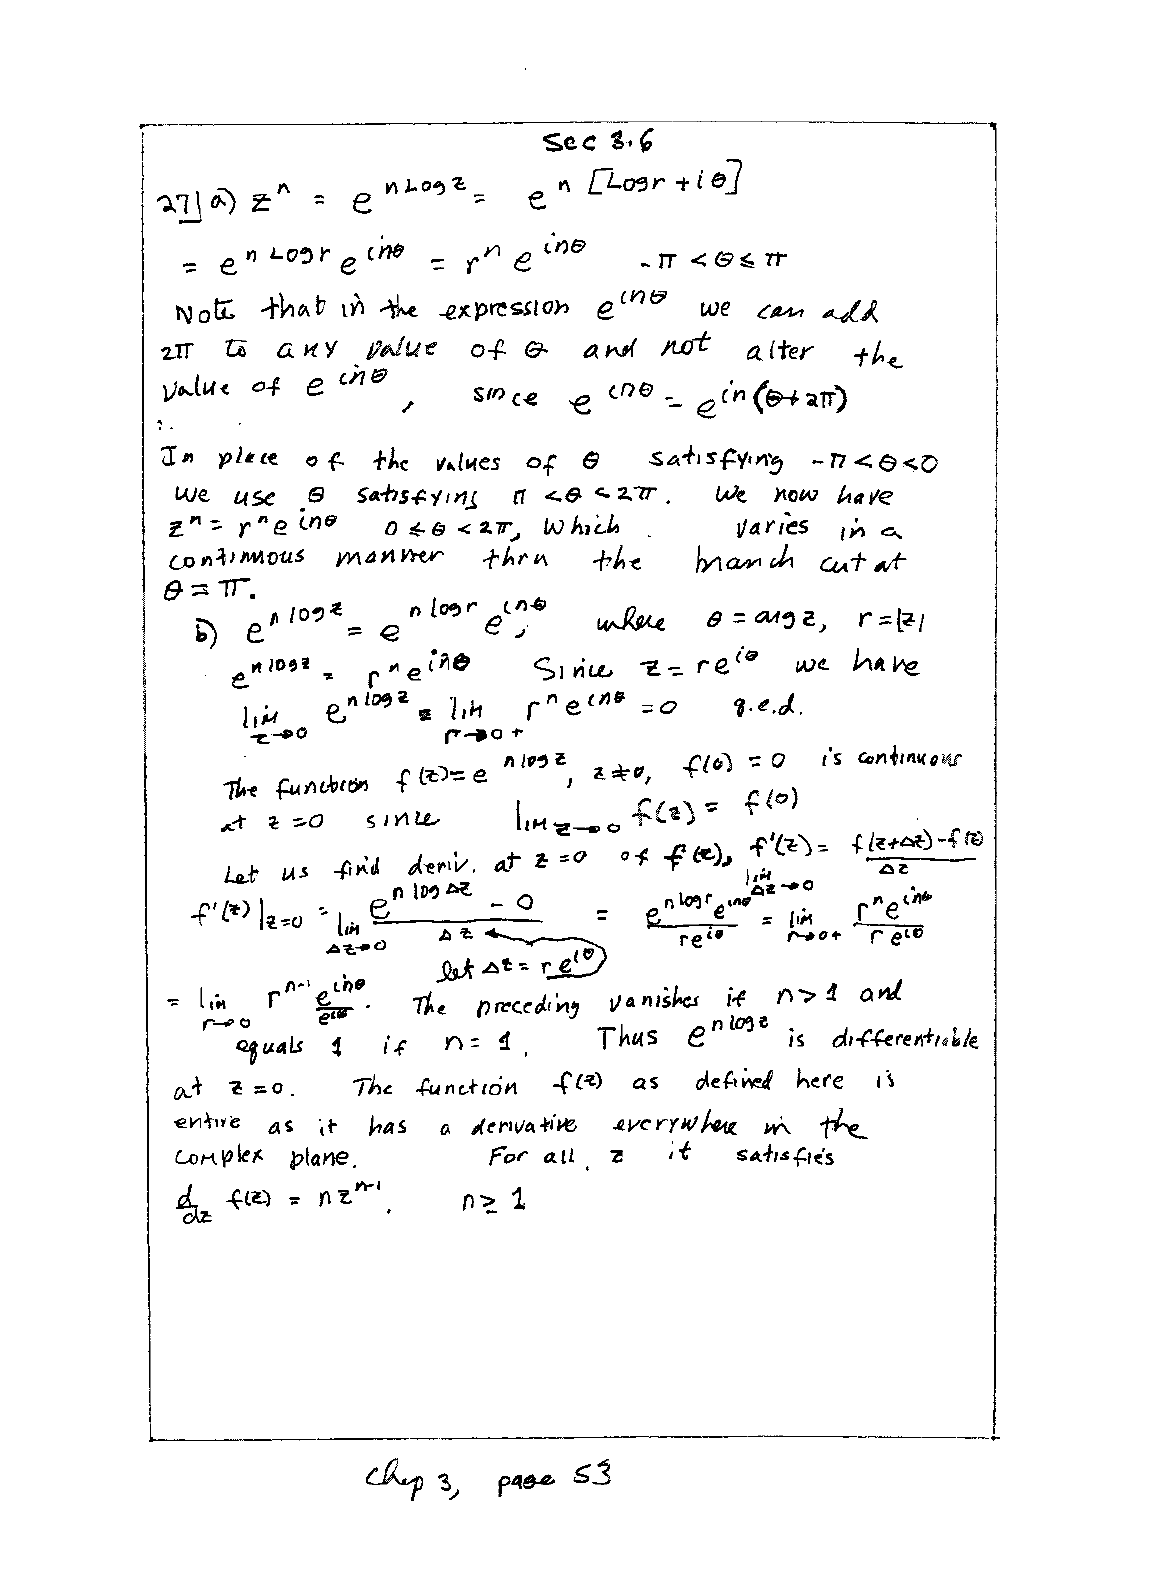 Sec 3.6
27| a) z^n = e^{n Log z} = e^{n [Log r + iθ]}
= e^{n Log r} e^{inθ} = r^n e^{inθ} -π < θ ≤ π
Note that in the expression e^{inθ} we can add
2π to any value of θ and not alter the
value of e^{inθ}, since e^{inθ} = e^{in(θ+2π)}
In place of the values of θ satisfying -π < θ < 0
we use θ satisfying π < θ < 2π. We now have
z^n = r^n e^{inθ} 0 ≤ θ < 2π, which varies in a
continuous manner thru the branch cut at
θ = π.
b) e^{n log z} = e^{n log r} e^{inθ}, where θ = arg z, r = |z|
e^{n log z} = r^n e^{inθ} Since z = re^{iθ} we have
lim_{z→0} e^{n log z} = lim_{r→0+} r^n e^{inθ} = 0 q.e.d.
The function f(z) = e^{n log z}, z ≠ 0, f(0) = 0 is continuous
at z = 0 since lim_{z→0} f(z) = f(0)
Let us find deriv. at z = 0 of f(z), f'(z) = lim_{Δz→0} \frac{f(z+Δz) - f(z)}{Δz}
f'(z)|_{z=0} = lim_{Δz→0} \frac{e^{n log Δz} - 0}{Δz} = \frac{e^{n log r} e^{inθ}}{re^{iθ}} = lim_{r→0+} \frac{r^n e^{inθ}}{r e^{iθ}}
let Δz = re^{iθ}
= lim_{r→0} r^{n-1} \frac{e^{inθ}}{e^{iθ}}. The preceding vanishes if n > 1 and
equals 1 if n = 1. Thus e^{n log z} is differentiable
at z = 0. The function f(z) as defined here is
entire as it has a derivative everywhere in the
complex plane. For all z it satisfies
\frac{d}{dz} f(z) = n z^{n-1}. n ≥ 1
Chap 3, page 53